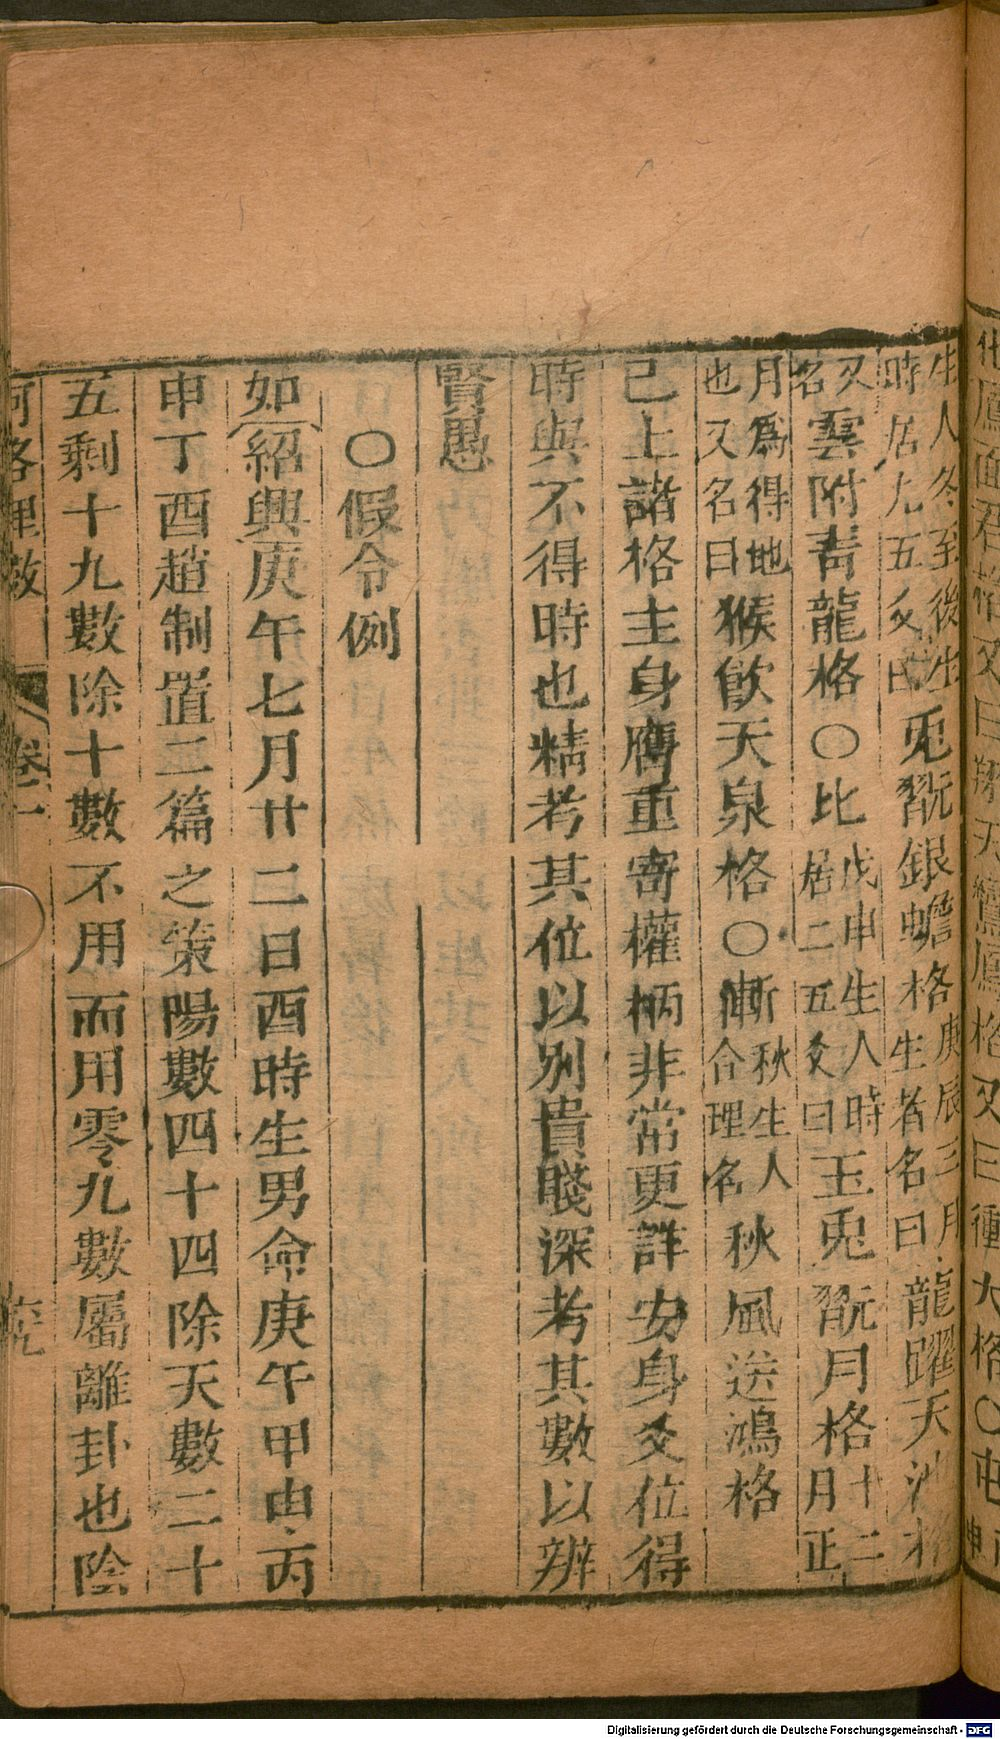 生人冬至後生
時居九五爻曰兎翫銀蟾格庚辰三月
生者名曰龍躍天池格
又
名雲附靑龍格○比戊申生人時
居二五爻曰玉兎翫月格十二
月正
月爲得地
也又名曰猴飮天泉格○漸秋生人
合理名秋風送鴻格
已上諧格主身膺重寄權柄非常更詳安身爻位得
時與不得時也精考其位以別貴賤深考其數以辨
賢愚
○假令例
如紹興庚午七月廿二日酉時生男命庚午甲申丙
申丁酉趙制置二篇之策陽數四十四除天數二十
五剩十九數除十數不用而用零九數屬離卦也陰
河洛理數 卷二
Digitalisierung gefördert durch die Deutsche Forschungsgemeinschaft - DFG